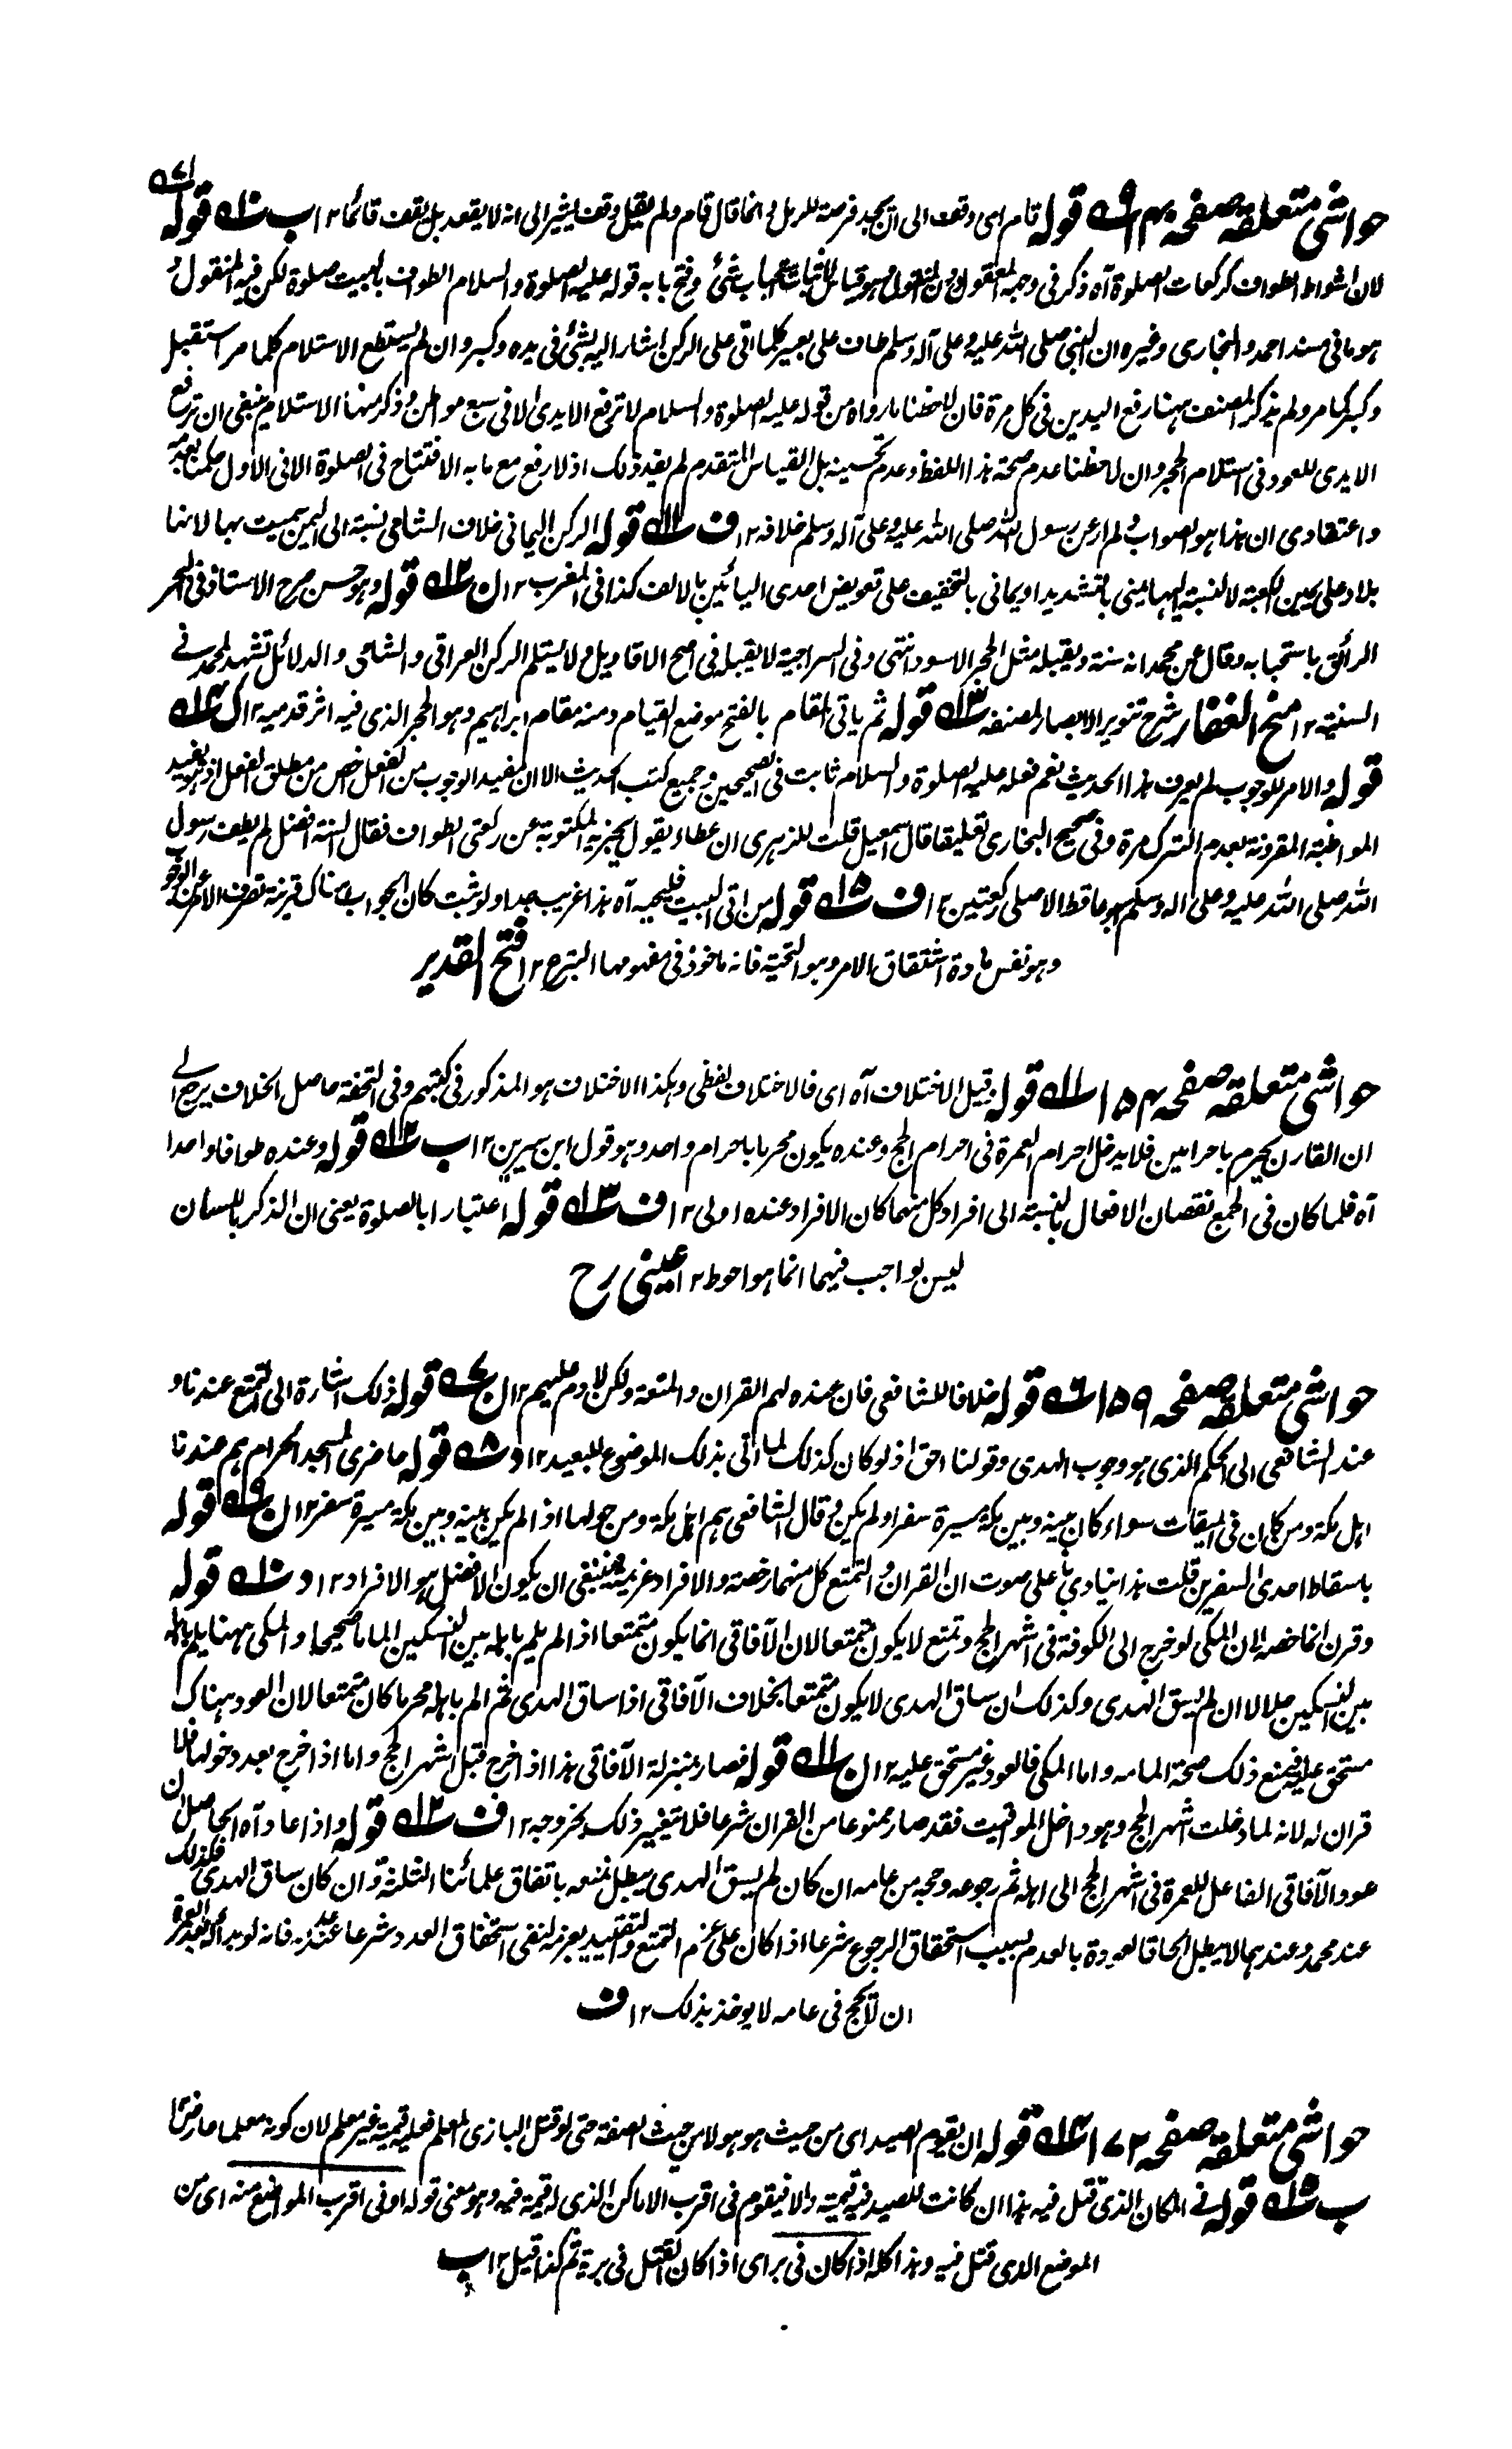 حواشی متعلقہ صفحہ ۱۴۰ ۹ قوله قام ای وقف الی ان یجد فرصة للرمل و انما قال قام ولم یقل وقف لیشیر الی انه لا یقعد بل یقف قائما ۱۲ ب ۱۰ قوله
لان اشواط الطواف کرکعات الصلوة آه ذکر فی وجهه المعقول دون المنقول وهو قیاس شئ وفتح بابه قوله علیه الصلوة والسلام الطواف بالبیت صلوة لکن فیه المنقول و
هو ما فی مسند احمد والبخاری وغیره ان النبی صلی الله علیه وعلی آله وسلم طاف علی بعیر کلما اتی علی الرکن اشار الیه بشئ فی یده وکبر وان لم یستطع الاستلام کلما مر استقبل
وکبر کما مر ولم یذکر المصنف ههنا رفع الیدین فی کل مرة فان لاحظنا ما رواه من قوله علیه الصلوة والسلام لا ترفع الایدی الا فی سبع مواطن وذکر منها الاستلام ینبغی ان ترفع
الایدی للعود فی استلام الحجر وان لاحظنا عدم صحة هذا اللفظ وعدم تحسینه بل القیاس المتقدم لم یفد ذلک اذ لا رفع مع ما به الافتتاح فی الصلوة الا فی الاول
واعتقادی ان هذا هو الصواب ولم ار عن رسول الله صلی الله علیه وعلی آله وسلم خلافه ۱۲ ف ۱۱ قوله الرکن الیمانی خلاف الشامی نسبة الی الیمن سمیت بها لانها
بلاد علی یمین الکعبة والنسبة الیها یمنی بالتشدید او یمانی بالتخفیف علی تعویض احدی الیائین بالالف کذا فی المغرب ۱۲ ن ۱۲ قوله وهو حسن صرح الاستاذ فی البحر
الرائق باستحبابه وقال عن محمد انه سنة ویقبله مثل الحجر الاسود انتهی وفی السراجیة لا یقبله فی اصح الاقاویل ولا یستلم الرکن العراقی والشامی والدلائل تشهد لمحمد فی
السنیة ۱۲ منح الغفار شرح تنویر الابصار لمصنفه ۱۳ قوله ثم یاتی المقام بالفتح موضع القیام ومنه مقام ابراهیم وهو الحجر الذی فیه اثر قدمیه ۱۲ ک ۱۴
قوله والامر للوجوب لم یعرف هذا الحدیث نعم فعله علیه الصلوة والسلام ثابت فی الصحیحین وجمیع کتب الحدیث الا ان المفید للوجوب من الفعل اخص من مطلق الفعل اذ هو یفید
المواظبة المقرونة بعدم الترک مرة وفی صحیح البخاری تعلیقا قال اسمعیل قلت للزهری ان عطاء یقول یجزیه المکتوبة عن رکعتی الطواف فقال السنة افضل لم یطف رسول
الله صلی الله علیه وعلی آله وسلم اسبوعا قط الا صلی رکعتین ۱۲ ف ۱۵ قوله من اتی البیت فلیحیه آه هذا غریب جدا ولو ثبت کان الجواب هناک قرینة تصرف الامر عن الوجوب
وهو نفس مادة اشتقاق الامر وهو التحیة فانه ماخوذ فی مفهومها التبرع ۱۲ فتح القدیر
حواشی متعلقہ صفحہ ۱۵۴ ۱۱ قوله وقیل الاختلاف آه ای فالاختلاف لفظی وهکذا الاختلاف هو المذکور فی کتبهم وفی التحفة حاصل الخلاف یرجع الی
ان القارن یحرم باحرامین فلا یدخل احرام العمرة فی احرام الحج وعنده یکون محرما باحرام واحد وهو قول ابن سیرین ۱۲ ب ۱۲ قوله وعنده طوافا واحدا
آه فلما کان فی الجمع نقصان الافعال بالنسبة الی افراد کل منهما کان الافراد عنده اولی ۱۲ ف ۱۳ قوله اعتبارا بالصلوة یعنی ان الذکر باللسان
لیس بواجب فیهما انما هو احوط ۱۲ عینی رح
حواشی متعلقہ صفحہ ۱۵۹ ۶ قوله خلافا للشافعی فان عنده لهم القران والمتعة ولکن لا دم علیهم ۱۲ ن ۷ قوله ذلک اشارة الی التمتع عندنا و
عند الشافعی الی الحکم الذی هو وجوب الهدی وقولنا احق اذ لو کان کذلک لما اتی بذلک الموضوع للبعید ۱۲ د ۸ قوله حاضری المسجد الحرام هم عندنا
اهل مکة ومن کان فی المیقات سواء کان بینه وبین مکة مسیرة سفر او لم یکن وقال الشافعی هم اهل مکة ومن حولها اذا لم یکن بینه وبین مکة مسیرة سفر ۱۲ ن ۹ قوله
باسقاط احدی السفرین قلت هذا ینادی باعلی صوت ان القران والتمتع کل منهما رخصة والافراد عزیمة فینبغی ان یکون الافضل هو الافراد ۱۲ د ۱۰ قوله
وقرن انما خصه لان المکی لو خرج الی الکوفة فی اشهر الحج وتمتع لا یکون متمتعا لان الآفاقی انما یکون متمتعا اذا لم یلم باهله بین النسکین الماما صحیحا والمکی ههنا یلم باهله
بین النسکین حلالا ان لم یسق الهدی وکذلک ان ساق الهدی لا یکون متمتعا بخلاف الآفاقی اذا ساق الهدی ثم الم باهله محرما کان متمتعا لان العود هناک
مستحق علیه فیمنع ذلک صحة المامه واما المکی فالعود غیر مستحق علیه ۱۲ ن ۱۱ قوله فصار بمنزلة الآفاقی هذا اذا خرج قبل اشهر الحج واما اذا خرج بعد دخولها فلا
قران له لانه لما دخلت اشهر الحج وهو داخل المواقیت فقد صار ممنوعا من القران شرعا فلا یتغیر ذلک بخروجه ۱۲ ف ۱۲ قوله واذا عاد آه الحاصل ان
عود الآفاقی الفاعل للعمرة فی اشهر الحج الی اهله ثم رجوعه وحجه من عامه ان کان لم یسق الهدی یبطل تمتعه باتفاق علمائنا الثلثة وان کان ساق الهدی فکذلک
عند محمد وعندهما لا یبطل الحاقا لعوده بالعدم بسبب استحقاق الرجوع شرعا اذا کان علی عزم التمتع والتقیید بعزمه لنفی استحقاق العود شرعا عند عدمه فانه لو بدأ له بعد العمرة
ان لا یحج فی عامه لا یوخذ بذلک ۱۲ ف
حواشی متعلقہ صفحہ ۱۷۲ ۱۴ قوله ان یقوم الصید ای من حیث هو هو لا من حیث الصفة حتی لو قتل البازی المعلم فعلیه قیمته غیر معلم لان کونه معلما عارض ۱۲
ب ۱۵ قوله فی المکان الذی قتل فیه هذا ان کانت للصید فیه قیمته والا فیقوم فی اقرب الاماکن الذی له قیمة فیه وهو معنی قوله او فی اقرب المواضع منه ای من
الموضع الذی قتل فیه وهذا کله اذا کان فی بر ای اذا کان القتل فی بریة ثم کذا قیل ۱۲ ب